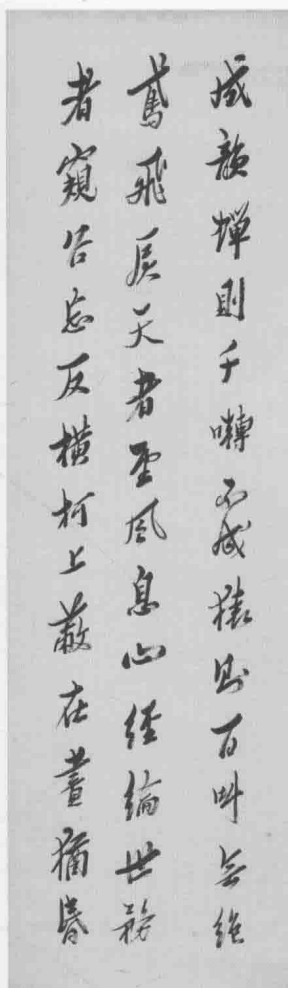 成韻蟬則千囀不成猿則百叫無絕
鳶飛戾天者望風息心經綸世務
者窺谷忘反橫柯上蔽在晝猶昏